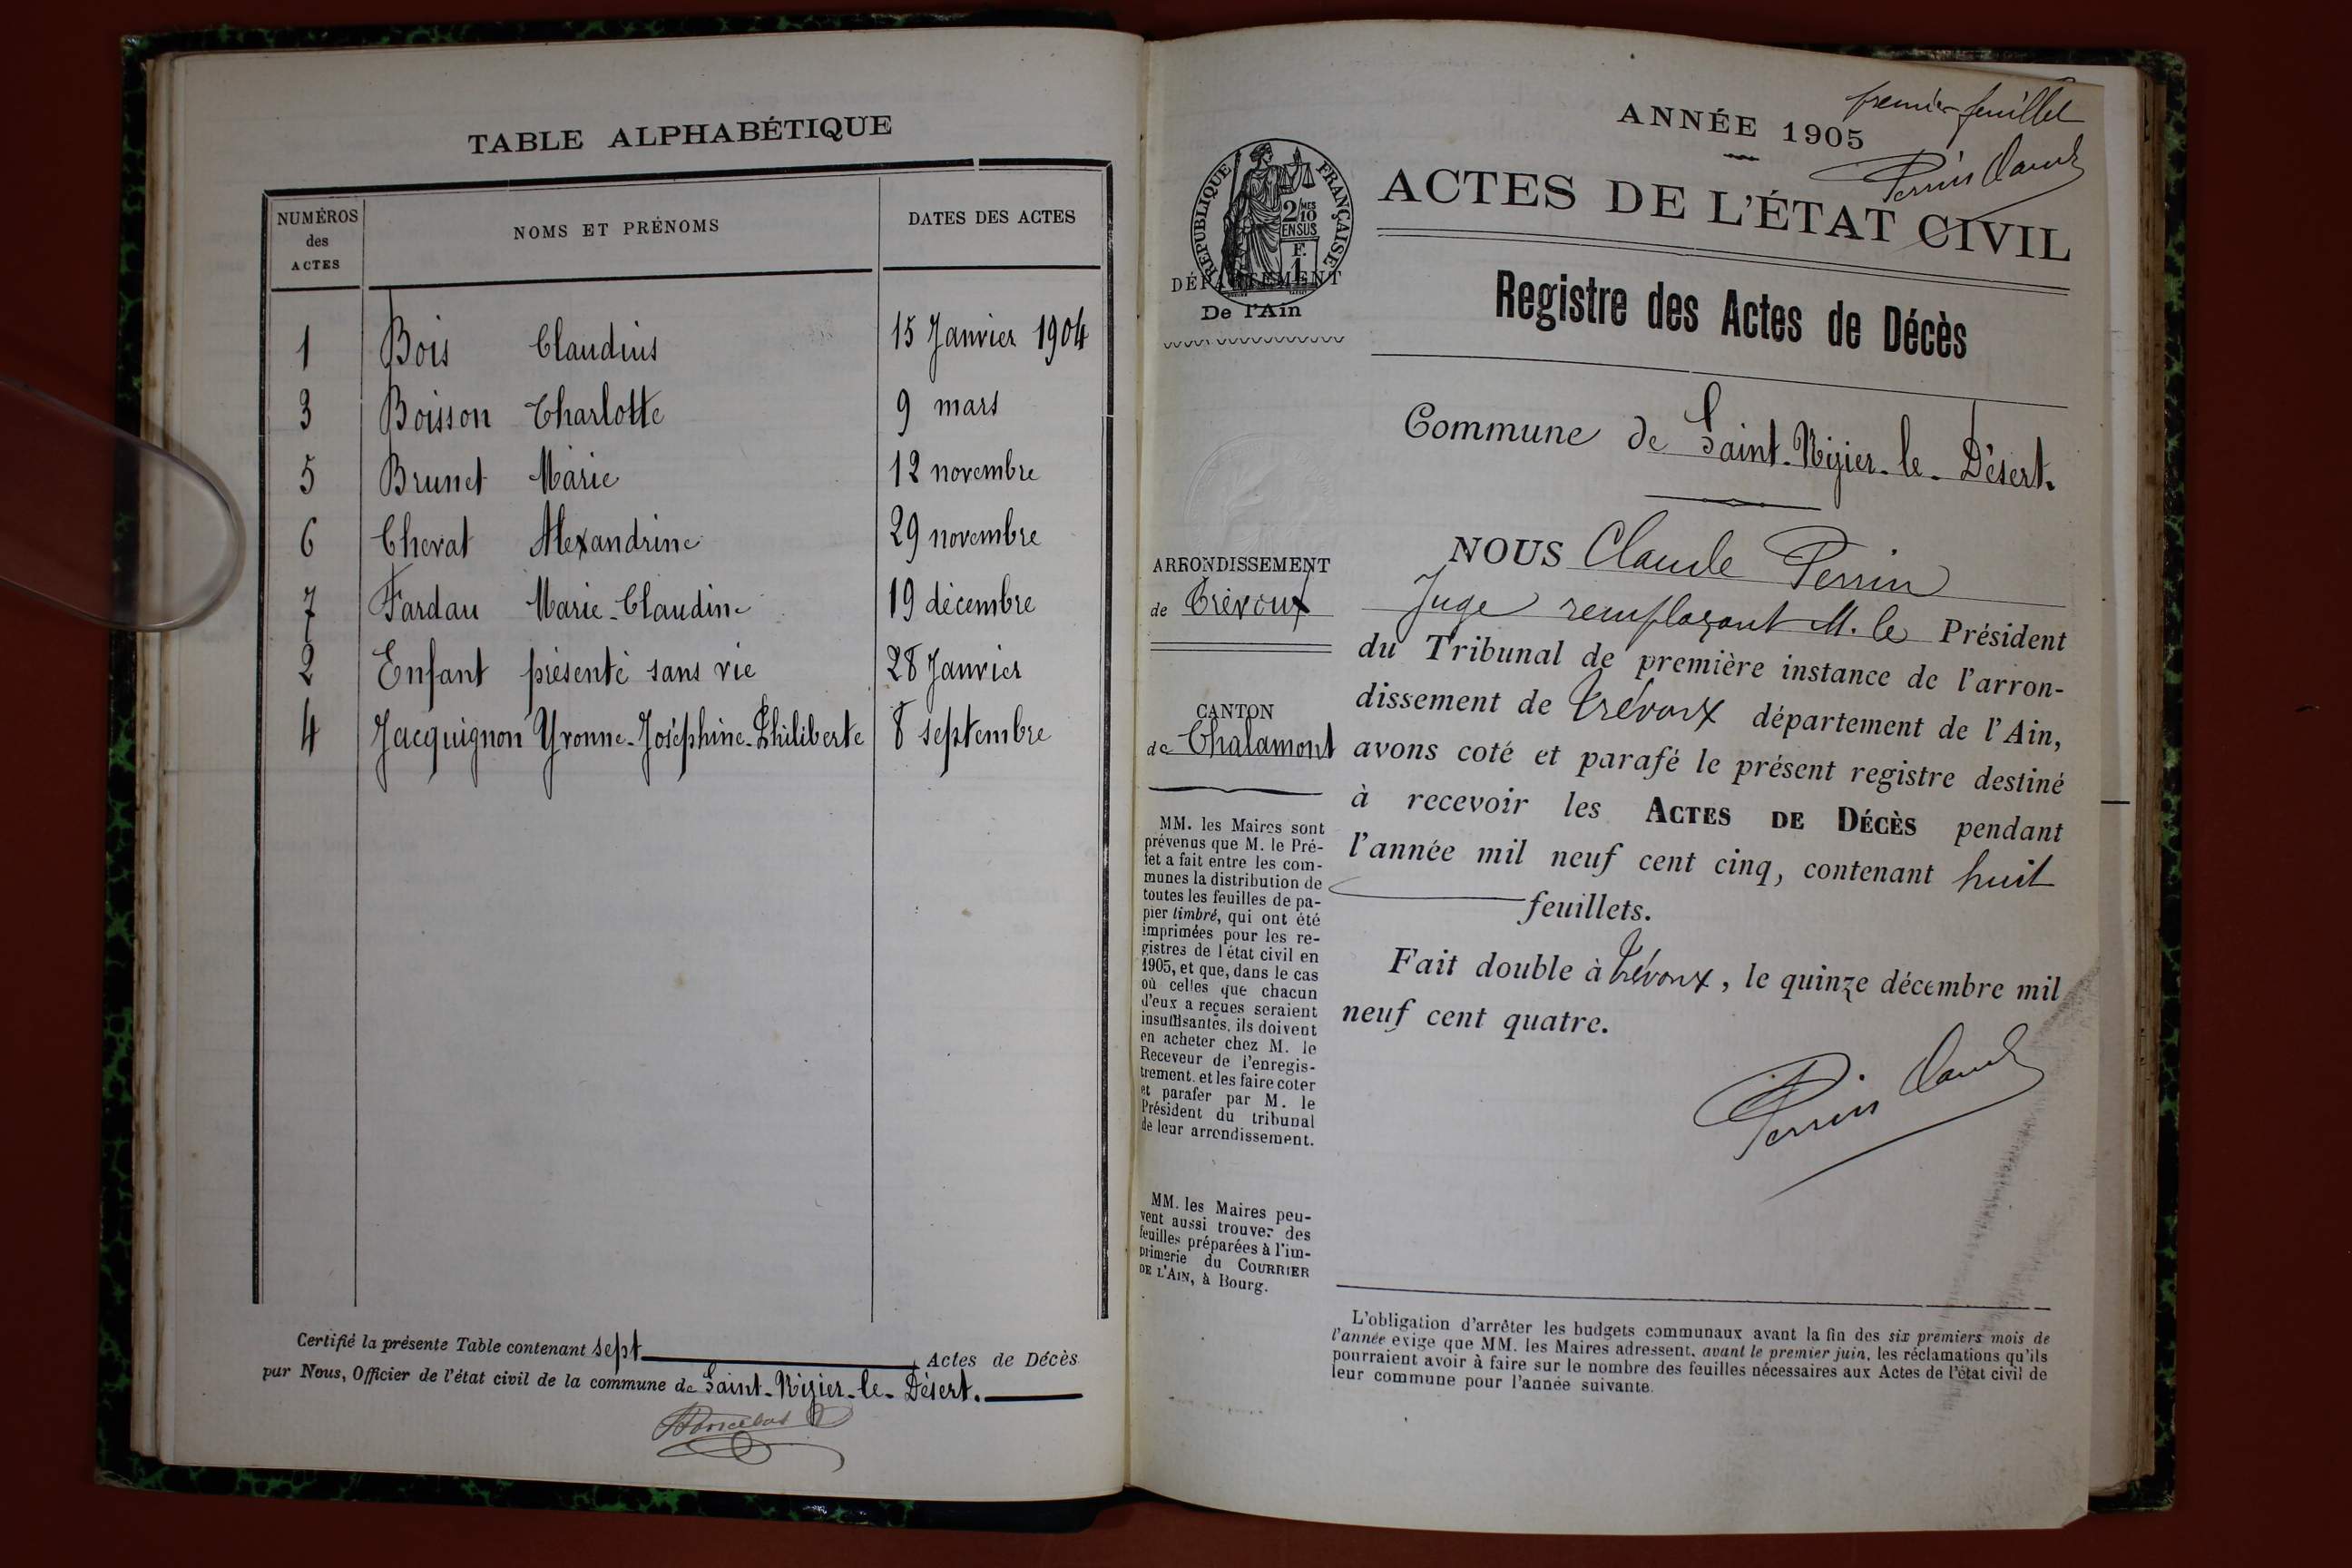 TABLE ALPHABÉTIQUE
NUMÉROS
des
ACTES
NOMS ET PRÉNOMS
DATES DES ACTES
1 Bois Claudius 15 Janvier 1904
3 Boisson Charlotte 9 mars
5 Brunet Marie 12 novembre
6 Chevat Alexandrine 29 novembre
7 Fardau Marie-Claudine 19 décembre
2 Enfant présenté sans vie 28 Janvier
4 Jacquignon Yvonne-Joséphine-Philiberte 8 septembre
Certifié la présente Table contenant sept Actes de Décès
par Nous, Officier de l'état civil de la commune de Saint-Nizier-le-Désert.
premier feuillet
Perrin Claude
ANNÉE 1905
ACTES DE L'ÉTAT CIVIL
Registre des Actes de Décès
RÉPUBLIQUE FRANÇAISE
2/10 MES
EN SUS
F.
1
DÉPARTEMENT
De l'Ain
Commune de Saint-Nizier-le-Désert.
ARRONDISSEMENT
de Trévoux
CANTON
de Chalamont
MM. les Maires sont
prévenus que M. le Pré-
fet a fait entre les com-
munes la distribution de
toutes les feuilles de pa-
pier timbré, qui ont été
imprimées pour les re-
gistres de l'état civil en
1905, et que, dans le cas
où celles que chacun
d'eux a reçues seraient
insuffisantes, ils doivent
en acheter chez M. le
Receveur de l'enregis-
trement, et les faire coter
et parafer par M. le
Président du tribunal
de leur arrondissement.
MM. les Maires peu-
vent aussi trouver des
feuilles préparées à l'im-
primerie du COURRIER
DE L'AIN, à Bourg.
NOUS Claude Perrin
Juge remplaçant M. le Président
du Tribunal de première instance de l'arron-
dissement de Trévoux département de l'Ain,
avons coté et parafé le présent registre destiné
à recevoir les ACTES DE DÉCÈS pendant
l'année mil neuf cent cinq, contenant huit
feuillets.
Fait double à Trévoux, le quinze décembre mil
neuf cent quatre.
Perrin Claude
L'obligation d'arrêter les budgets communaux avant la fin des six premiers mois de
l'année exige que MM. les Maires adressent, avant le premier juin, les réclamations qu'ils
pourraient avoir à faire sur le nombre des feuilles nécessaires aux Actes de l'état civil de
leur commune pour l'année suivante.